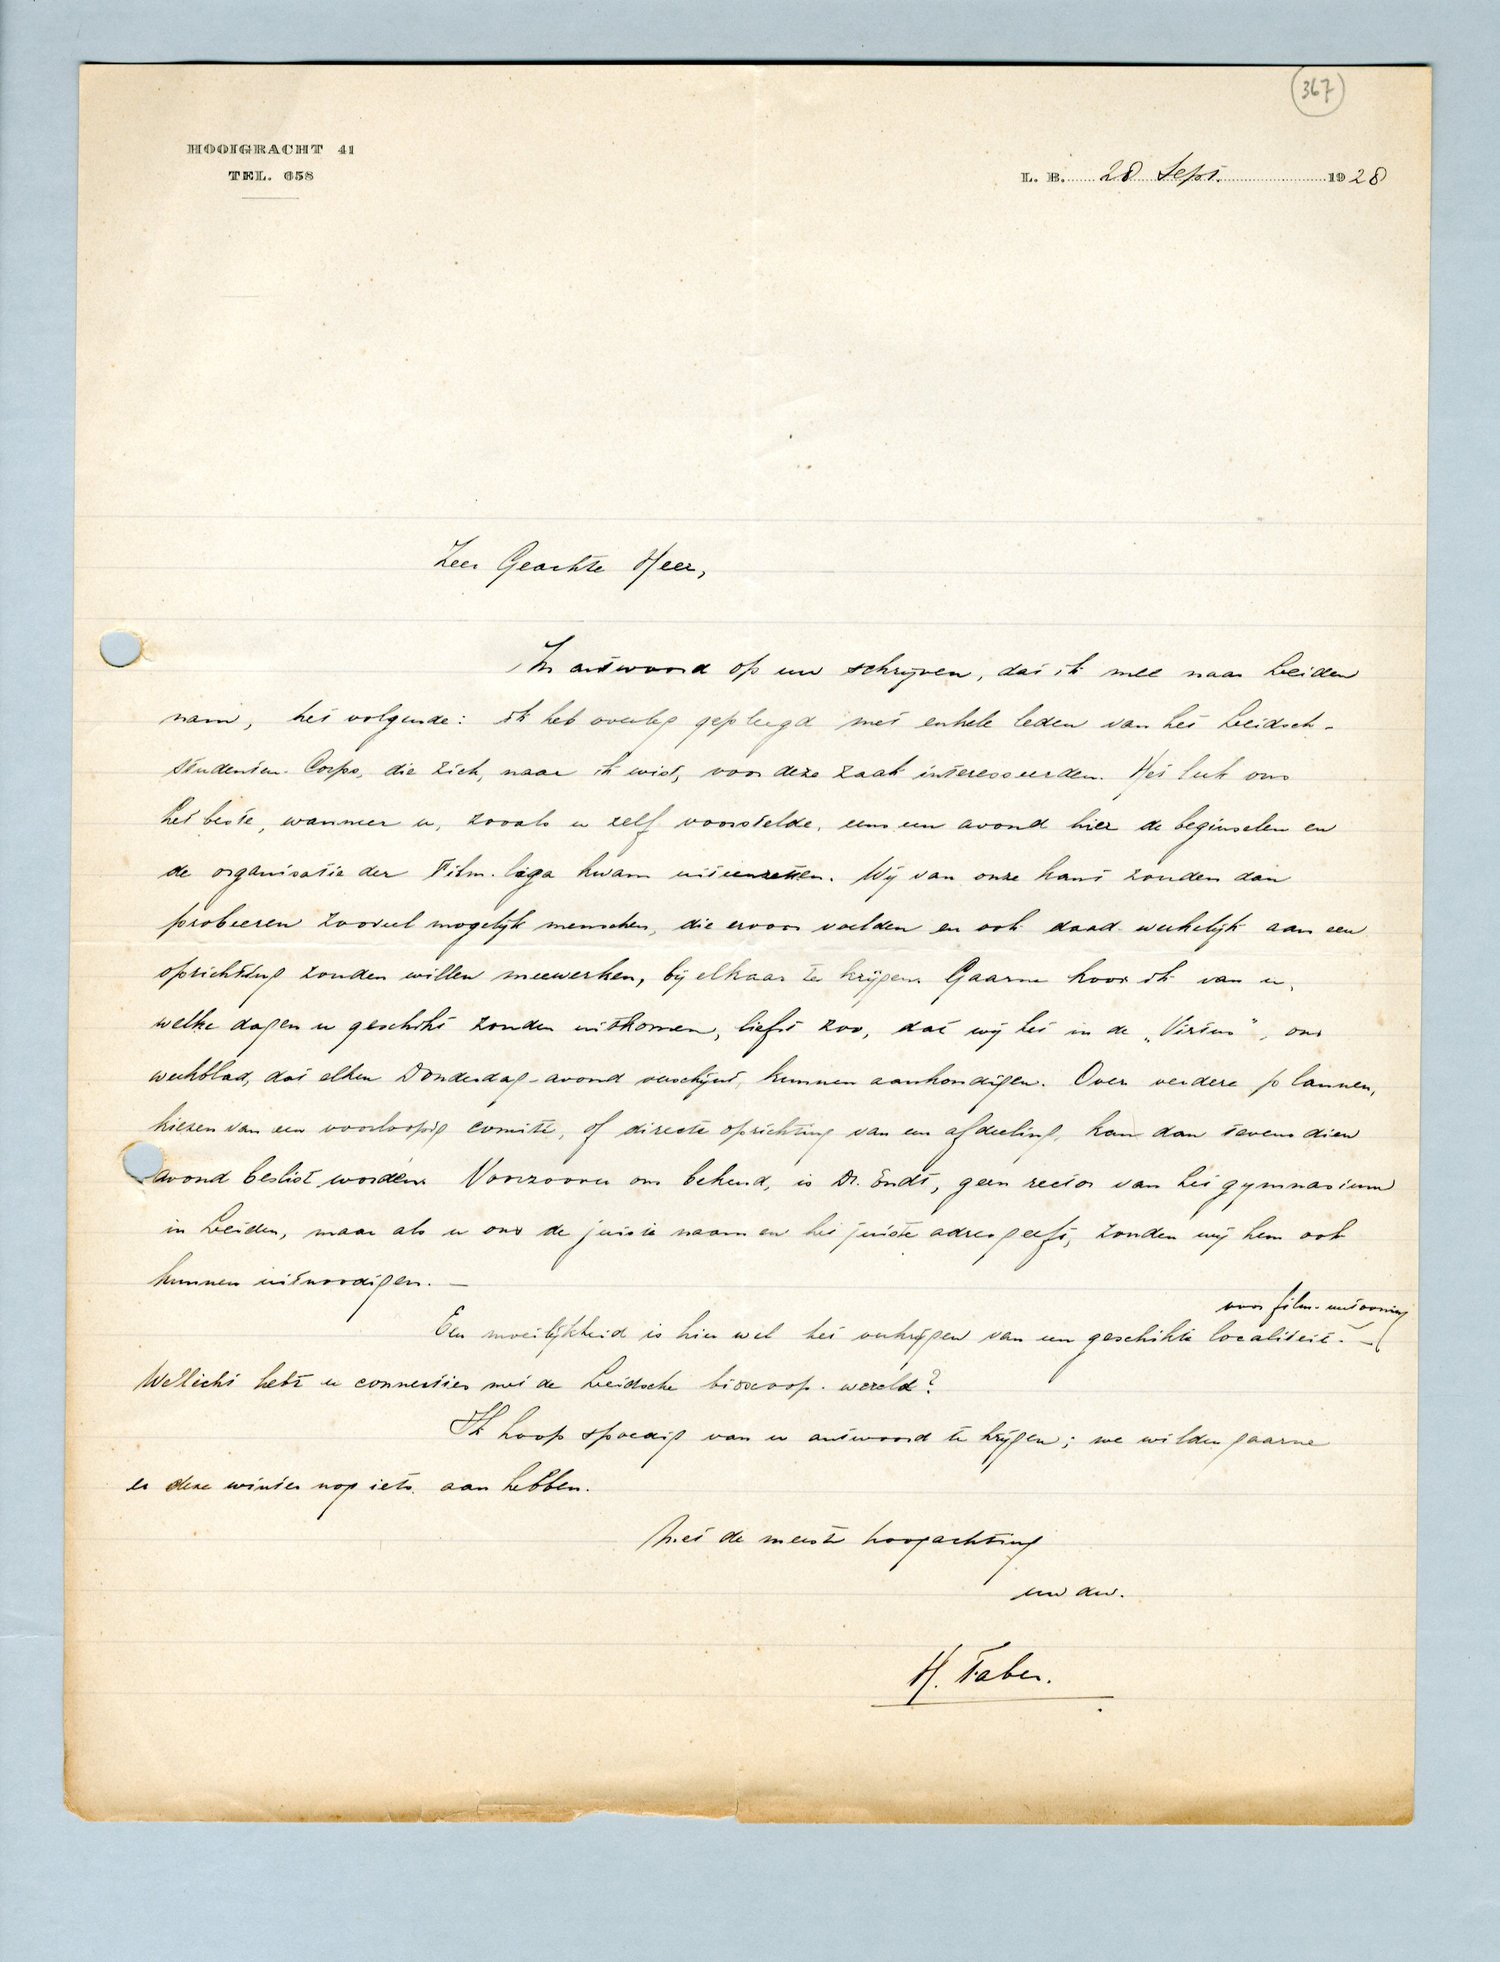 367
HOOIGRACHT 41
TEL. 658
L. B. 28 Sept. 1928
Zeer Geachte Heer,
In antwoord op uw schrijven, dat ik mee naar Leiden
nam, het volgende: ik heb overleg gepleegd met enkele leden van het Leidsch-
Studenten-Corps, die zich, naar ik wist, voor deze zaak interesseerden. Het leek ons
het beste, wanneer u, zooals u zelf voorstelde, eens een avond hier de beginselen en
de organisatie der Film-liga kwam uiteenzetten. Wij van onze kant zouden dan
probeeren zooveel mogelijk menschen, die ervoor voelden en ook daad-werkelijk aan een
oprichting zouden willen meewerken, bij elkaar te krijgen. Gaarne hoor ik van u,
welke dagen u geschikt zouden uitkomen, liefst zoo, dat wij het in de „Virtus", ons
weekblad, dat elken Donderdag-avond verschijnt, kunnen aankondigen. Over verdere plannen,
kiezen van een voorloopig comité, of directe oprichting van een afdeeling, kan dan tevens dien
avond beslist worden. Voorzoover ons bekend, is Dr. Endt, geen rector van het gymnasium
in Leiden, maar als u ons de juiste naam en het juiste adres geeft, zouden wij hem ook
kunnen uitnoodigen. —
voor film-vertooning
Een moeilijkheid is hier wel het verkrijgen van een geschikte localiteit. —
Wellicht hebt u connecties met de Leidsche bioscoop-wereld?
Ik hoop spoedig van u antwoord te krijgen; we wilden gaarne
er deze winter nog iets aan hebben.
Met de meeste hoogachting
uw dw.
H. Faber.